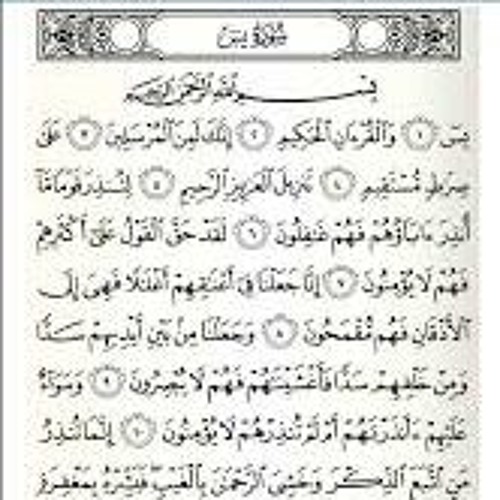 سُورَةُ يسٓ
بِسْمِ ٱللَّهِ ٱلرَّحْمَٰنِ ٱلرَّحِيمِ
يسٓ ١ وَٱلْقُرْءَانِ ٱلْحَكِيمِ ٢ إِنَّكَ لَمِنَ ٱلْمُرْسَلِينَ ٣ عَلَىٰ
صِرَٰطٍ مُّسْتَقِيمٍ ٤ تَنزِيلَ ٱلْعَزِيزِ ٱلرَّحِيمِ ٥ لِتُنذِرَ قَوْمًا مَّآ
أُنذِرَ ءَابَآؤُهُمْ فَهُمْ غَٰفِلُونَ ٦ لَقَدْ حَقَّ ٱلْقَوْلُ عَلَىٰٓ أَكْثَرِهِمْ
فَهُمْ لَا يُؤْمِنُونَ ٧ إِنَّا جَعَلْنَا فِىٓ أَعْنَٰقِهِمْ أَغْلَٰلًا فَهِىَ إِلَى
ٱلْأَذْقَانِ فَهُم مُّقْمَحُونَ ٨ وَجَعَلْنَا مِنۢ بَيْنِ أَيْدِيهِمْ سَدًّا
وَمِنْ خَلْفِهِمْ سَدًّا فَأَغْشَيْنَٰهُمْ فَهُمْ لَا يُبْصِرُونَ ٩ وَسَوَآءٌ
عَلَيْهِمْ ءَأَنذَرْتَهُمْ أَمْ لَمْ تُنذِرْهُمْ لَا يُؤْمِنُونَ ١٠ إِنَّمَا تُنذِرُ
مَنِ ٱتَّبَعَ ٱلذِّكْرَ وَخَشِىَ ٱلرَّحْمَٰنَ بِٱلْغَيْبِ فَبَشِّرْهُ بِمَغْفِرَةٍ